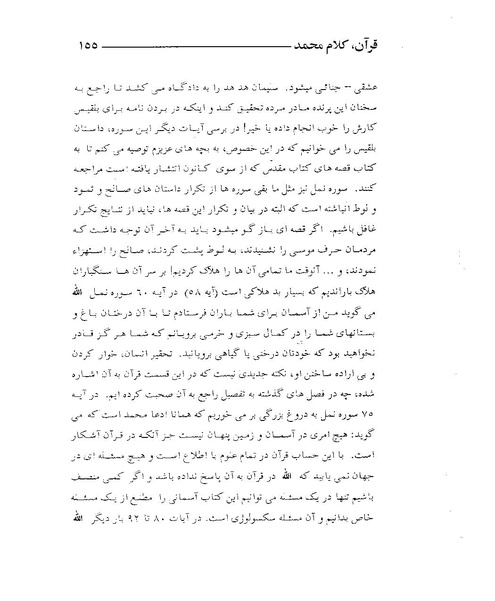 قرآن، کلام محمد ۱۵۵
عشقی -- جنائی میشود. سلیمان هد هد را به دادگاه می کشد تا راجع به
سخنان این پرنده مادر مرده تحقیق کند و اینکه در بردن نامه برای بلقیس
کارش را خوب انجام داده یا خیر! در برسی آیات دیگر این سوره، داستان
بلقیس را می خوانیم که در این خصوص، به بچه های عزیزم توصیه می کنم تا به
کتاب قصه های کتاب مقدس که از سوی کانون انتشار یافته است مراجعه
کنند. سوره نمل نیز مثل ما بقی سوره ها از تکرار داستان های صالح و ثمود
و لوط انباشته است که البته در بیان و تکرار این قصه ها، نباید از نتایج تکرار
غافل باشیم. اگر قصه ای باز گو میشود باید به آخر آن توجه داشت که
مردمان حرف موسی را نشنیدند، به لوط پشت کردند، صالح را استهزاء
نمودند، و ... آنوقت ما تمامی آن ها را هلاک کردیم! بر سر آن ها سنگباران
هلاک باراندیم که بسیار بد هلاکی است (آیه ۵۸) در آیه ۶۰ سوره نمل الله
می گوید من از آسمان برای شما باران فرستادم تا با آن درختان باغ و
بستانهای شما را در کمال سبزی و خرمی برویانم که شما هر گز قادر
نخواهید بود که خودتان درختی یا گیاهی برویانید. تحقیر انسان، خوار کردن
و بی اراده ساختن او، نکته جدیدی نیست که در این قسمت قرآن به آن اشاره
شده، چه در فصل های گذشته به تفصیل راجع به آن صحبت کرده ایم. در آیه
۷۵ سوره نمل به دروغ بزرگی بر می خوریم که همانا ادعا محمد است که می
گوید: هیچ امری در آسمان و زمین پنهان نیست جز آنکه در قرآن آشکار
است. با این حساب قرآن در تمام علوم با اطلاع است و هیچ مسئله ای در
جهان نمی یابید که الله در قرآن به آن پاسخ نداده باشد و اگر کمی منصف
باشیم تنها در یک مسئله می توانیم این کتاب آسمانی را مطلع از یک مسئله
خاص بدانیم و آن مسئله سکسولوژی است. در آیات ۸۰ تا ۹۲ بار دیگر الله